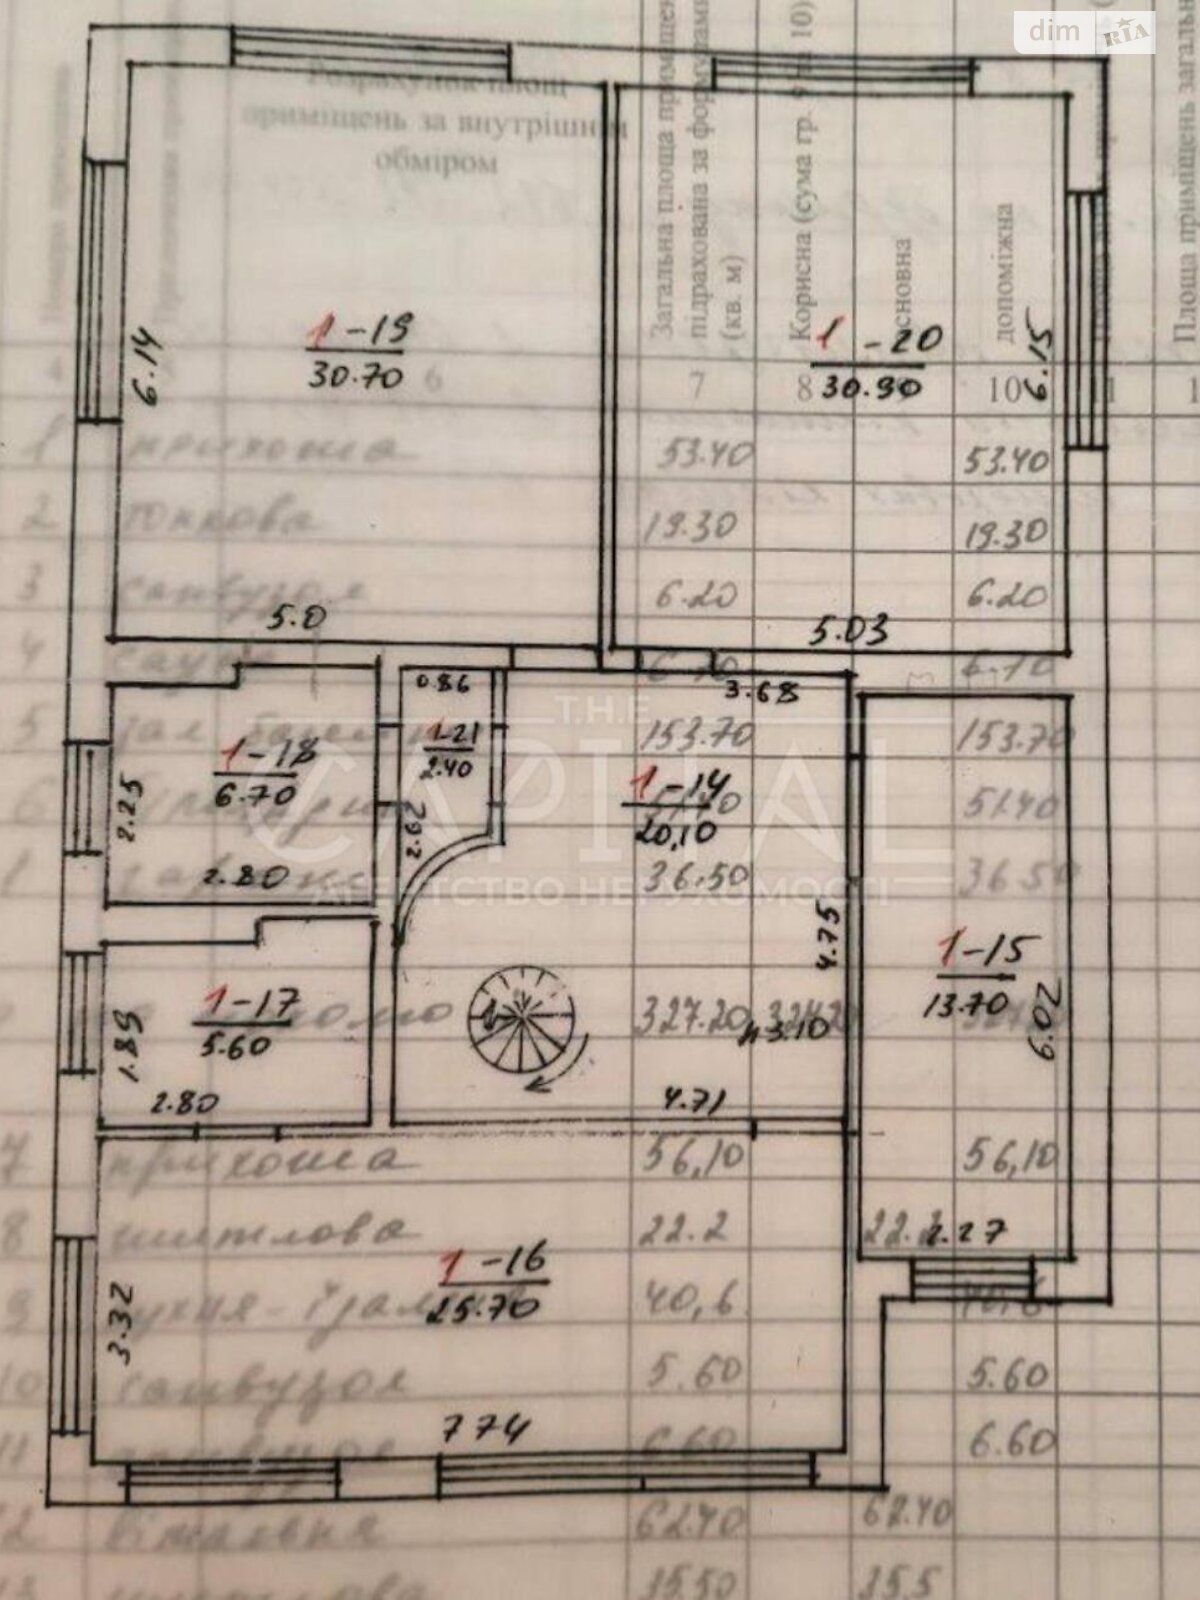 dim RIA
Розрахунок площ
приміщень за внутрішнім
обміром
Загальна площа приміщень
підрахована за формулами
(кв. м)
Корисна (сума гр. 9 та 10)
основна
допоміжна
Площа приміщень загальна
1-19
30.70
6.14
5.0
1-20
30.90
6.15
5.03
6
7
8
10
1 прихожа 53.40 53.40
2 топкова 19.30 19.30
3 санвузол 6.20 6.20
4 сауна 6.70 6.70
5 зал басейн 153.70 153.70
51.40
1 36.50 36.50
327.20
7 прихожа 56,10 56,10
8 житлова 22.2 22.2
9 кухня-їдальня 40,6 40,6
10 санвузол 5.60 5.60
11 6.60 6.60
12 вітальня 62.40 62.40
13 житлова 15.50 15.5
1-18
6.70
2.25
2.80
0.86
1-21
2.40
2.62
3.68
1-14
20,10
4.75
4.71
h 3.10
1-15
13.70
6.02
2.27
1-17
5.60
1.89
2.80
1-16
25.70
3.32
7.74
T.H.E
CAPITAL
АГЕНТСТВО НЕРУХОМОСТІ